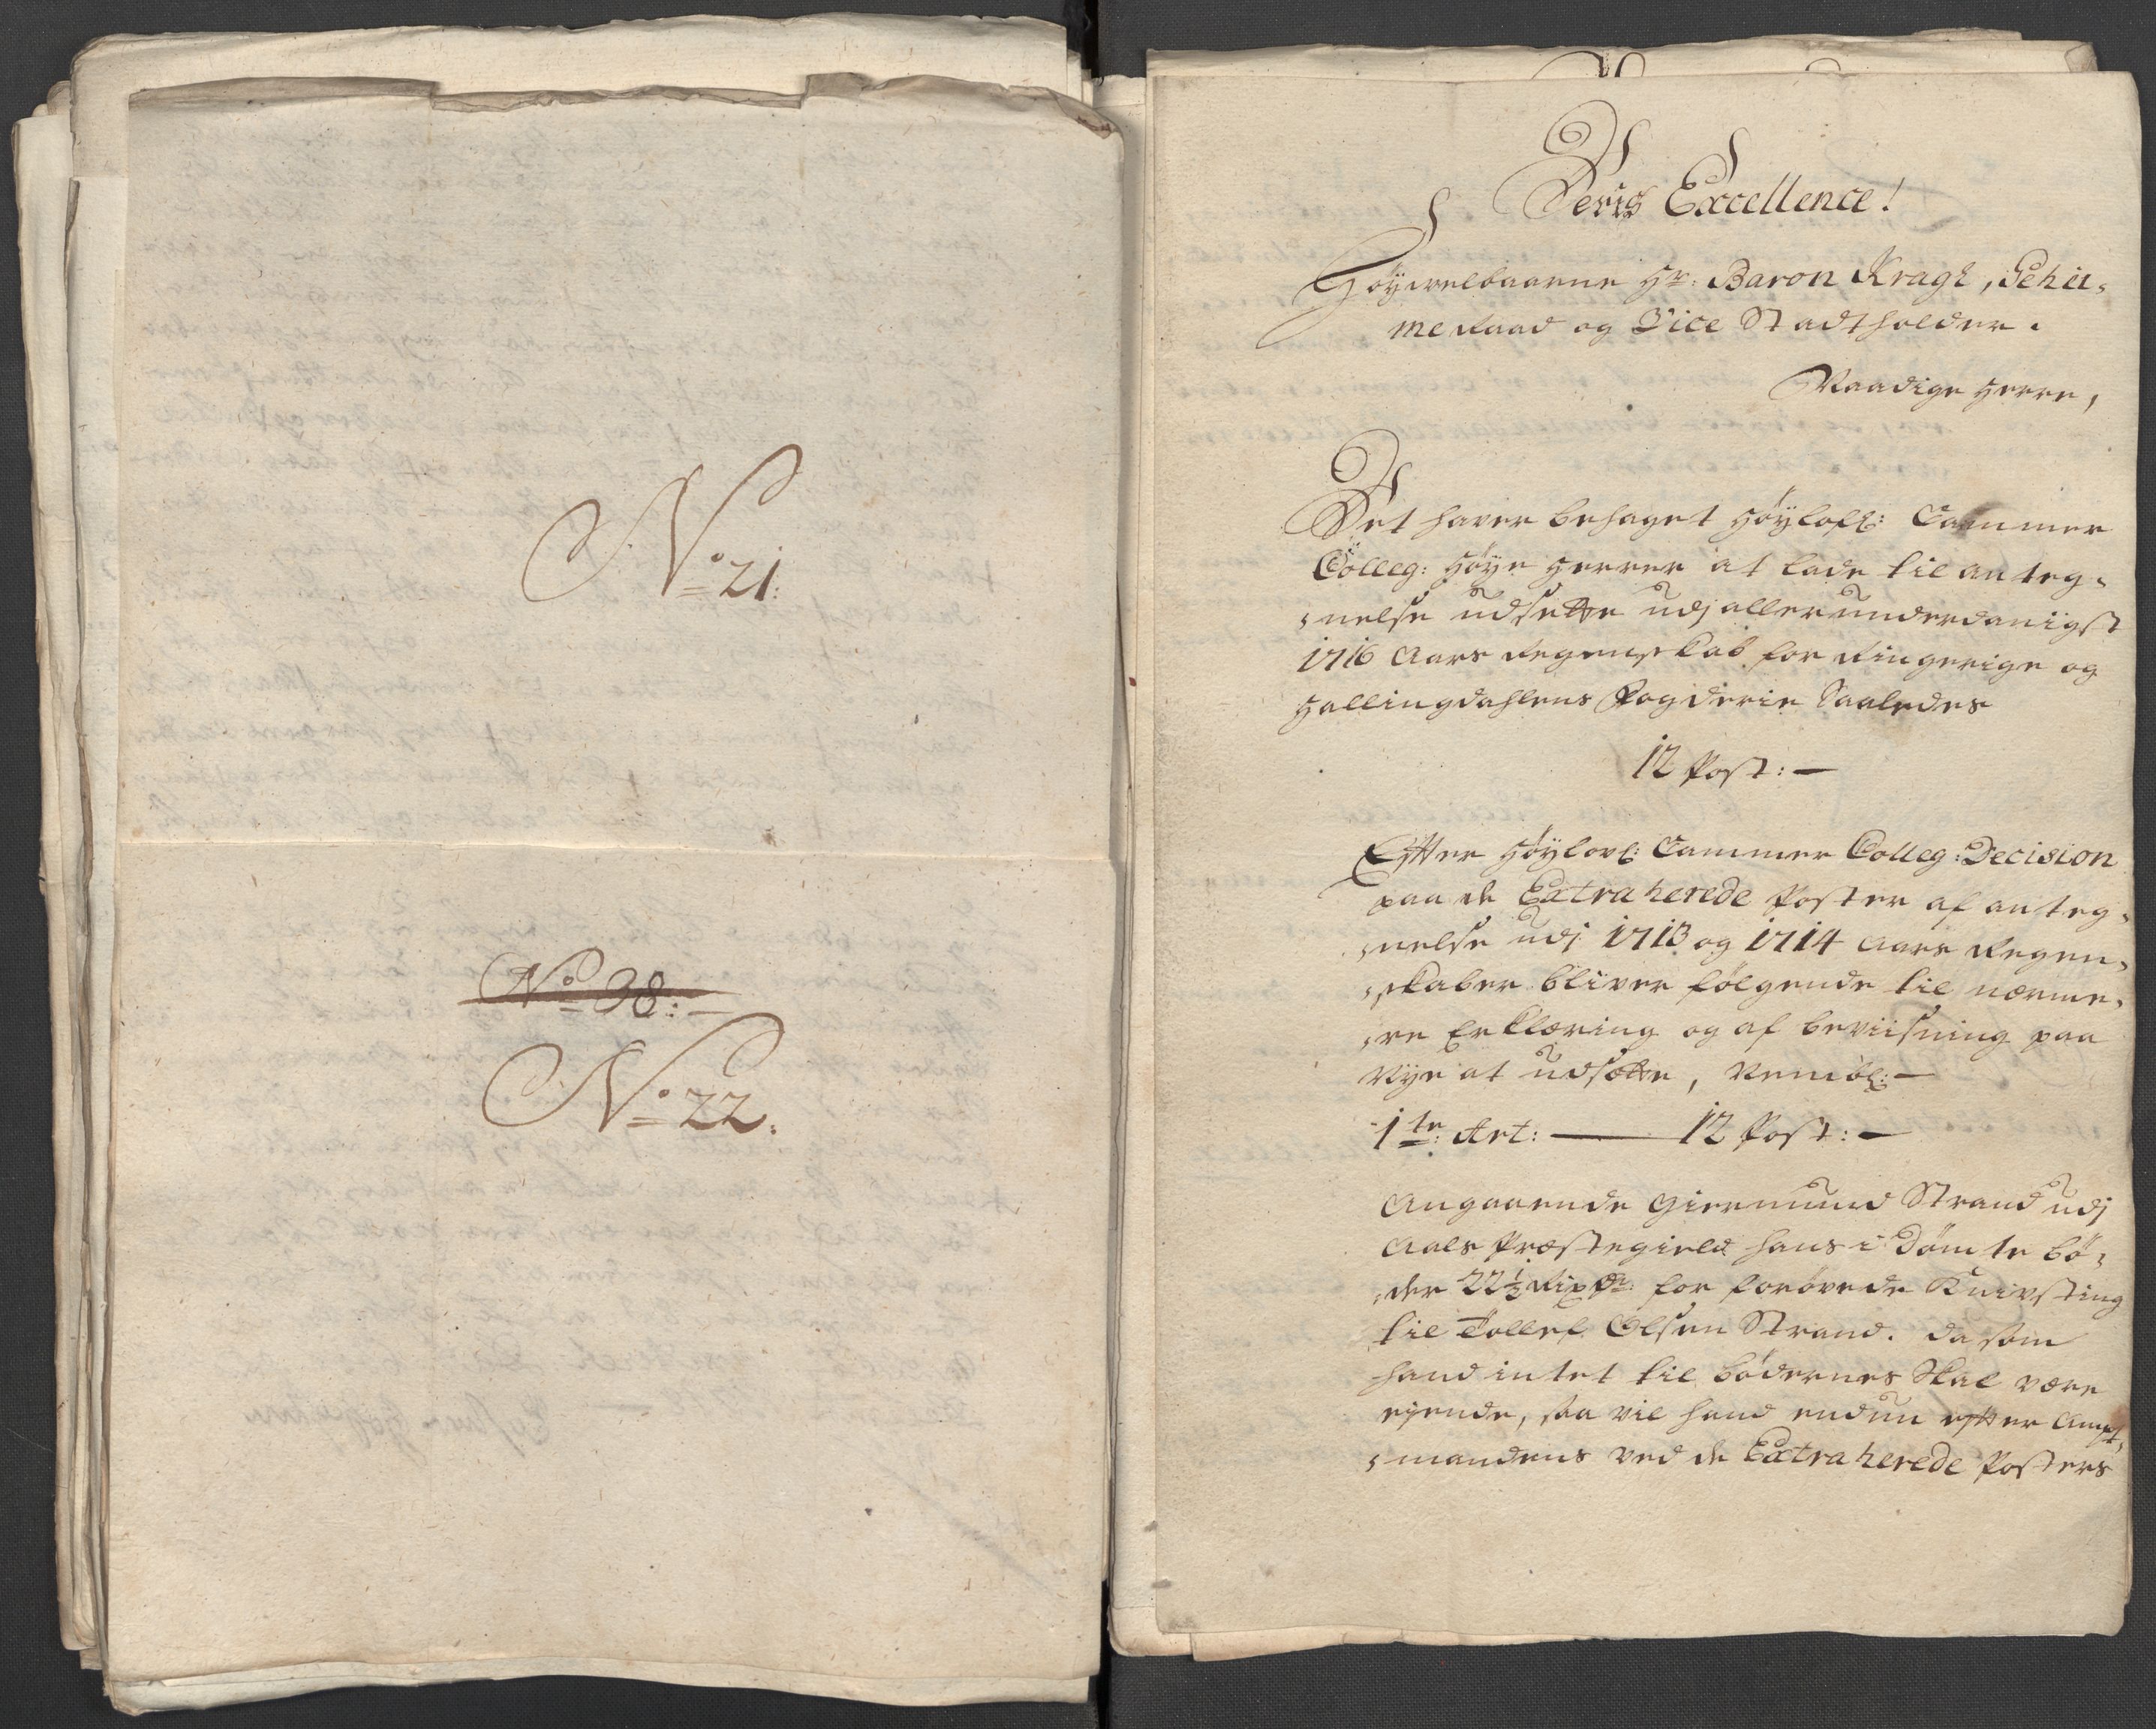 No 21:
No 38:
No 22.
Deris Excellence!
Høyvelbaarne Hr: Baron Kragh, Gehei-
me Raad og Vice Stadtholder.
Naadige Herre,
Det haver behaget Høylofl: Cammer
Colleg: Høye Herrer at lade til anteg-
nelse udsette udj allerunderdanigst
1716 Aars Regenskab for Ringerige og
Hallingdahlens Fogderie Saaledes
12 Post: —
Efter Høylovl: Cammer Colleg: Decision
paa de Extraherede Poster af anteg-
nelse udj 1713 og 1714 Aars Regen-
skaber bliver følgende til nærme-
re Erklæring og af beviisning paa
Nye at udsætte, Nembl: —
1te: Art: — 12 Post: —
Angaaende Giermund Strand udj
Aals Præstegield hans i Dømte bø-
der 22½ Rixdr: for forøvede Knivsting
til Tollef Olsen Strand. da som
hand intet til bødernes Skal være
ejende, saa vil hand endnu efter Ampt-
mandens ved de Extraherede Posters